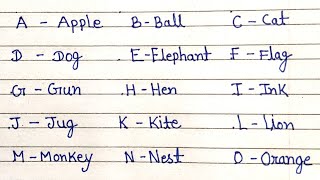 A - Apple B - Ball C - Cat
D - Dog .E - Elephant F - Flag
G - Gun .H - Hen I - Ink
J - Jug K - Kite .L - Lion
M - Monkey N - Nest O - Orange